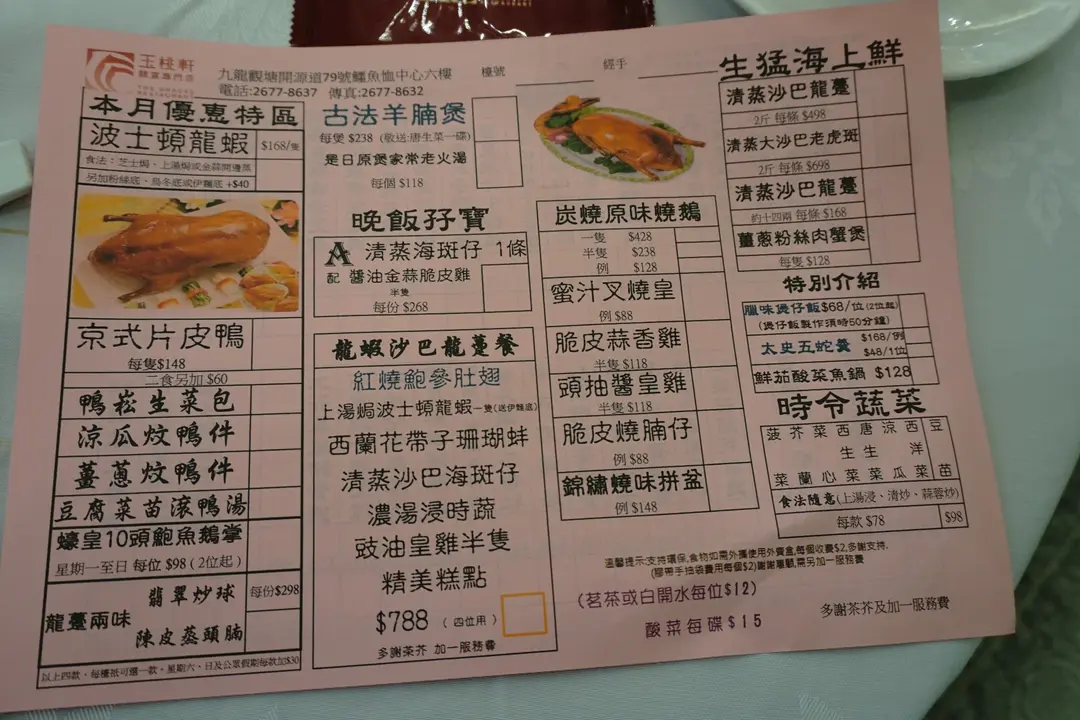 玉桃軒
九龍觀塘開源道79號鱷魚恤中心六樓
電話:2677-8637 傳真:2677-8632
檯號
經手
本月優惠特區
波士頓龍蝦 $168/隻
食法：芝士焗、上湯焗或金蒜開邊蒸
另加粉絲底、烏冬底或伊麵底 +$40
京式片皮鴨
每隻$148
二食另加 $60
鴨崧生菜包
涼瓜炆鴨件
薑蔥炆鴨件
豆腐菜苗滾鴨湯
蠔皇10頭鮑魚鵝掌
星期一至日 每位 $98 (2位起)
龍躉兩味
翡翠炒球
陳皮蒸頭腩
每份$298
以上四款，每檯祇可選一款。星期六、日及公眾假期每款加$30
古法羊腩煲
每煲 $238 (敬送:唐生菜一碟)
是日原煲家常老火湯
每個 $118
晚飯孖寶
A 清蒸海斑仔 1條
配 醬油金蒜脆皮雞
半隻
每份 $268
龍蝦沙巴龍躉餐
紅燒鮑參肚翅
上湯焗波士頓龍蝦一隻(送伊麵底)
西蘭花帶子珊瑚蚌
清蒸沙巴海斑仔
濃湯浸時蔬
豉油皇雞半隻
精美糕點
$788 (四位用)
多謝茶芥 加一服務費
炭燒原味燒鵝
一隻 $428
半隻 $238
例 $128
蜜汁叉燒皇
例 $88
脆皮蒜香雞
半隻 $118
頭抽醬皇雞
半隻 $118
脆皮燒腩仔
例 $88
錦繡燒味拼盆
例 $148
生猛海上鮮
清蒸沙巴龍躉
2斤 每條 $498
清蒸大沙巴老虎斑
2斤 每條 $698
清蒸沙巴龍躉
約十四兩 每條 $168
薑蔥粉絲肉蟹煲
每隻 $128
特別介紹
臘味煲仔飯$68/位(2位起)
(煲仔飯製作須時50分鐘)
太史五蛇羹 $168/例
$48/1位
鮮茄酸菜魚鍋 $128
時令蔬菜
菠芥菜西唐涼西豆
生生 洋
菜蘭心菜菜瓜菜苗
食法隨意(上湯浸、清炒、蒜蓉炒)
每款 $78 $98
溫馨提示:支持環保,食物如需外攜使用外賣盒,每個收費$2,多謝支持.
(膠帶手抽袋費用每個$2)謝謝惠顧,需另加一服務費
(茗茶或白開水每位$12)
酸菜每碟$15
多謝茶芥及加一服務費